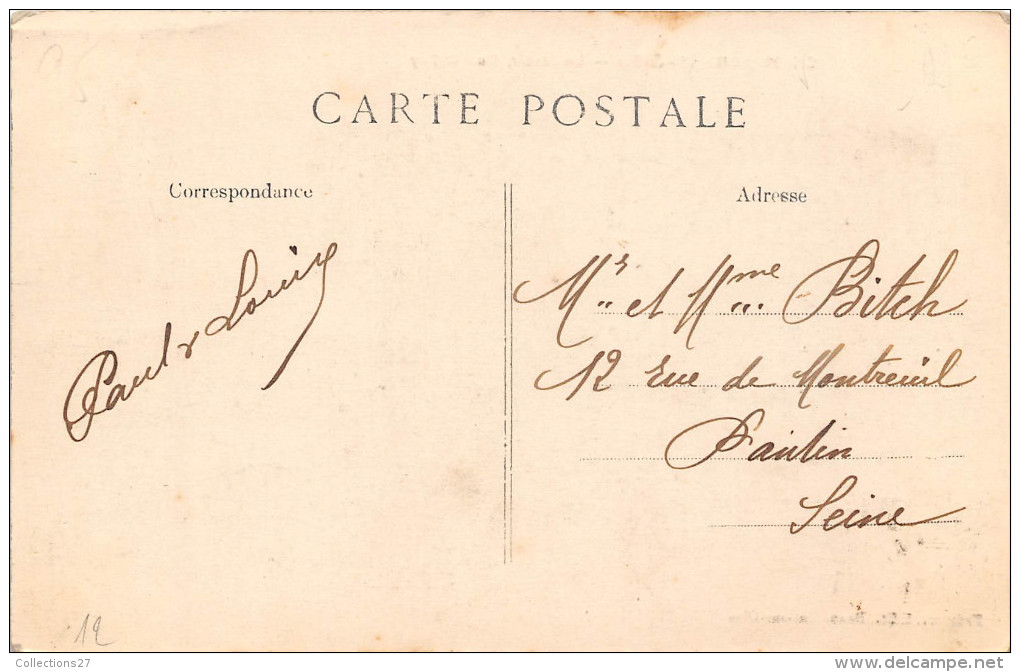 CARTE POSTALE
Correspondance
Adresse
Paul & Louise
Mr et Mme Bitch
12 rue de Montreuil
Pantin
Seine
12
Collections27
www.delcampe.net